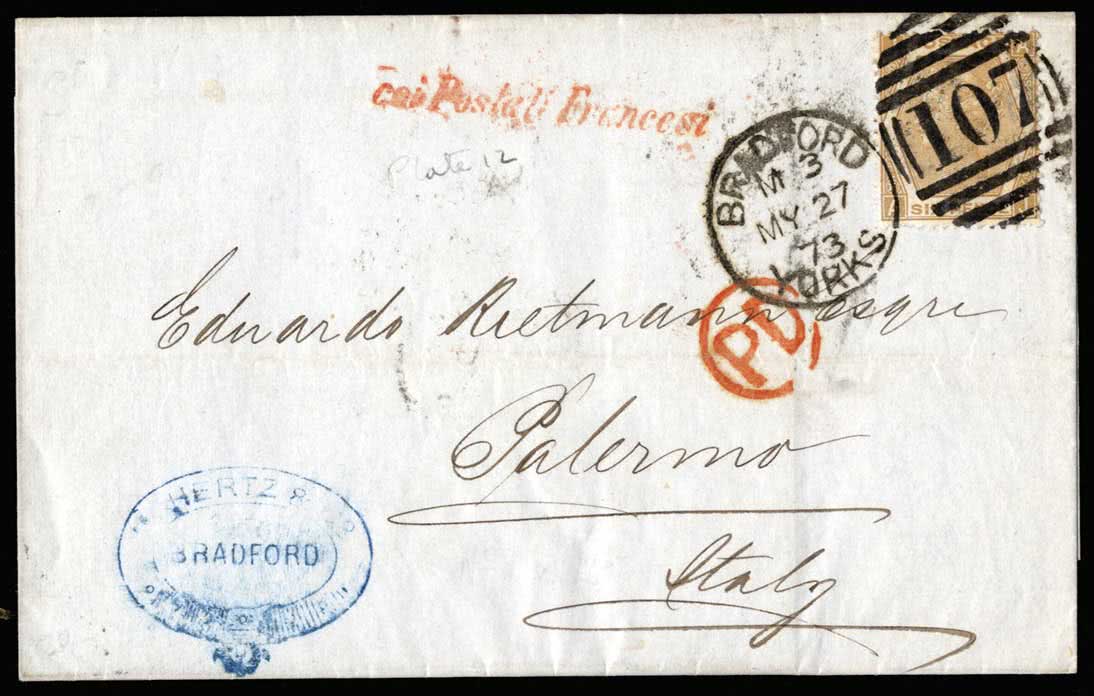 POSTAGE
107
coi Postali Francesi
Plate 12
BRADFORD
M 3
MY 27
73
YORKS
A SIX PENCE
Eduardo Rietmann Esqre
PD
Palermo
Italy
HERTZ &
BRADFORD